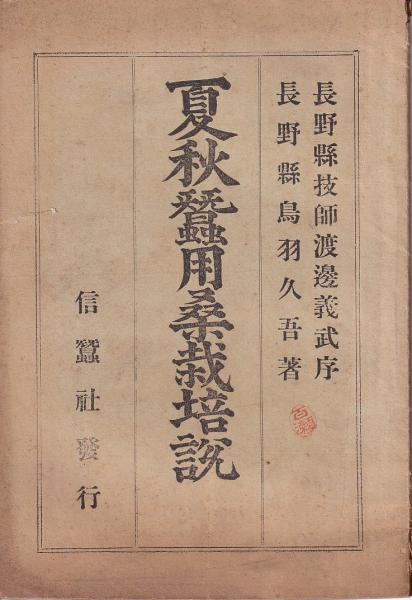 長野縣技師渡邊義武序
長野縣鳥羽久吾著
夏秋蠶用桑栽培説
信蠶社發行